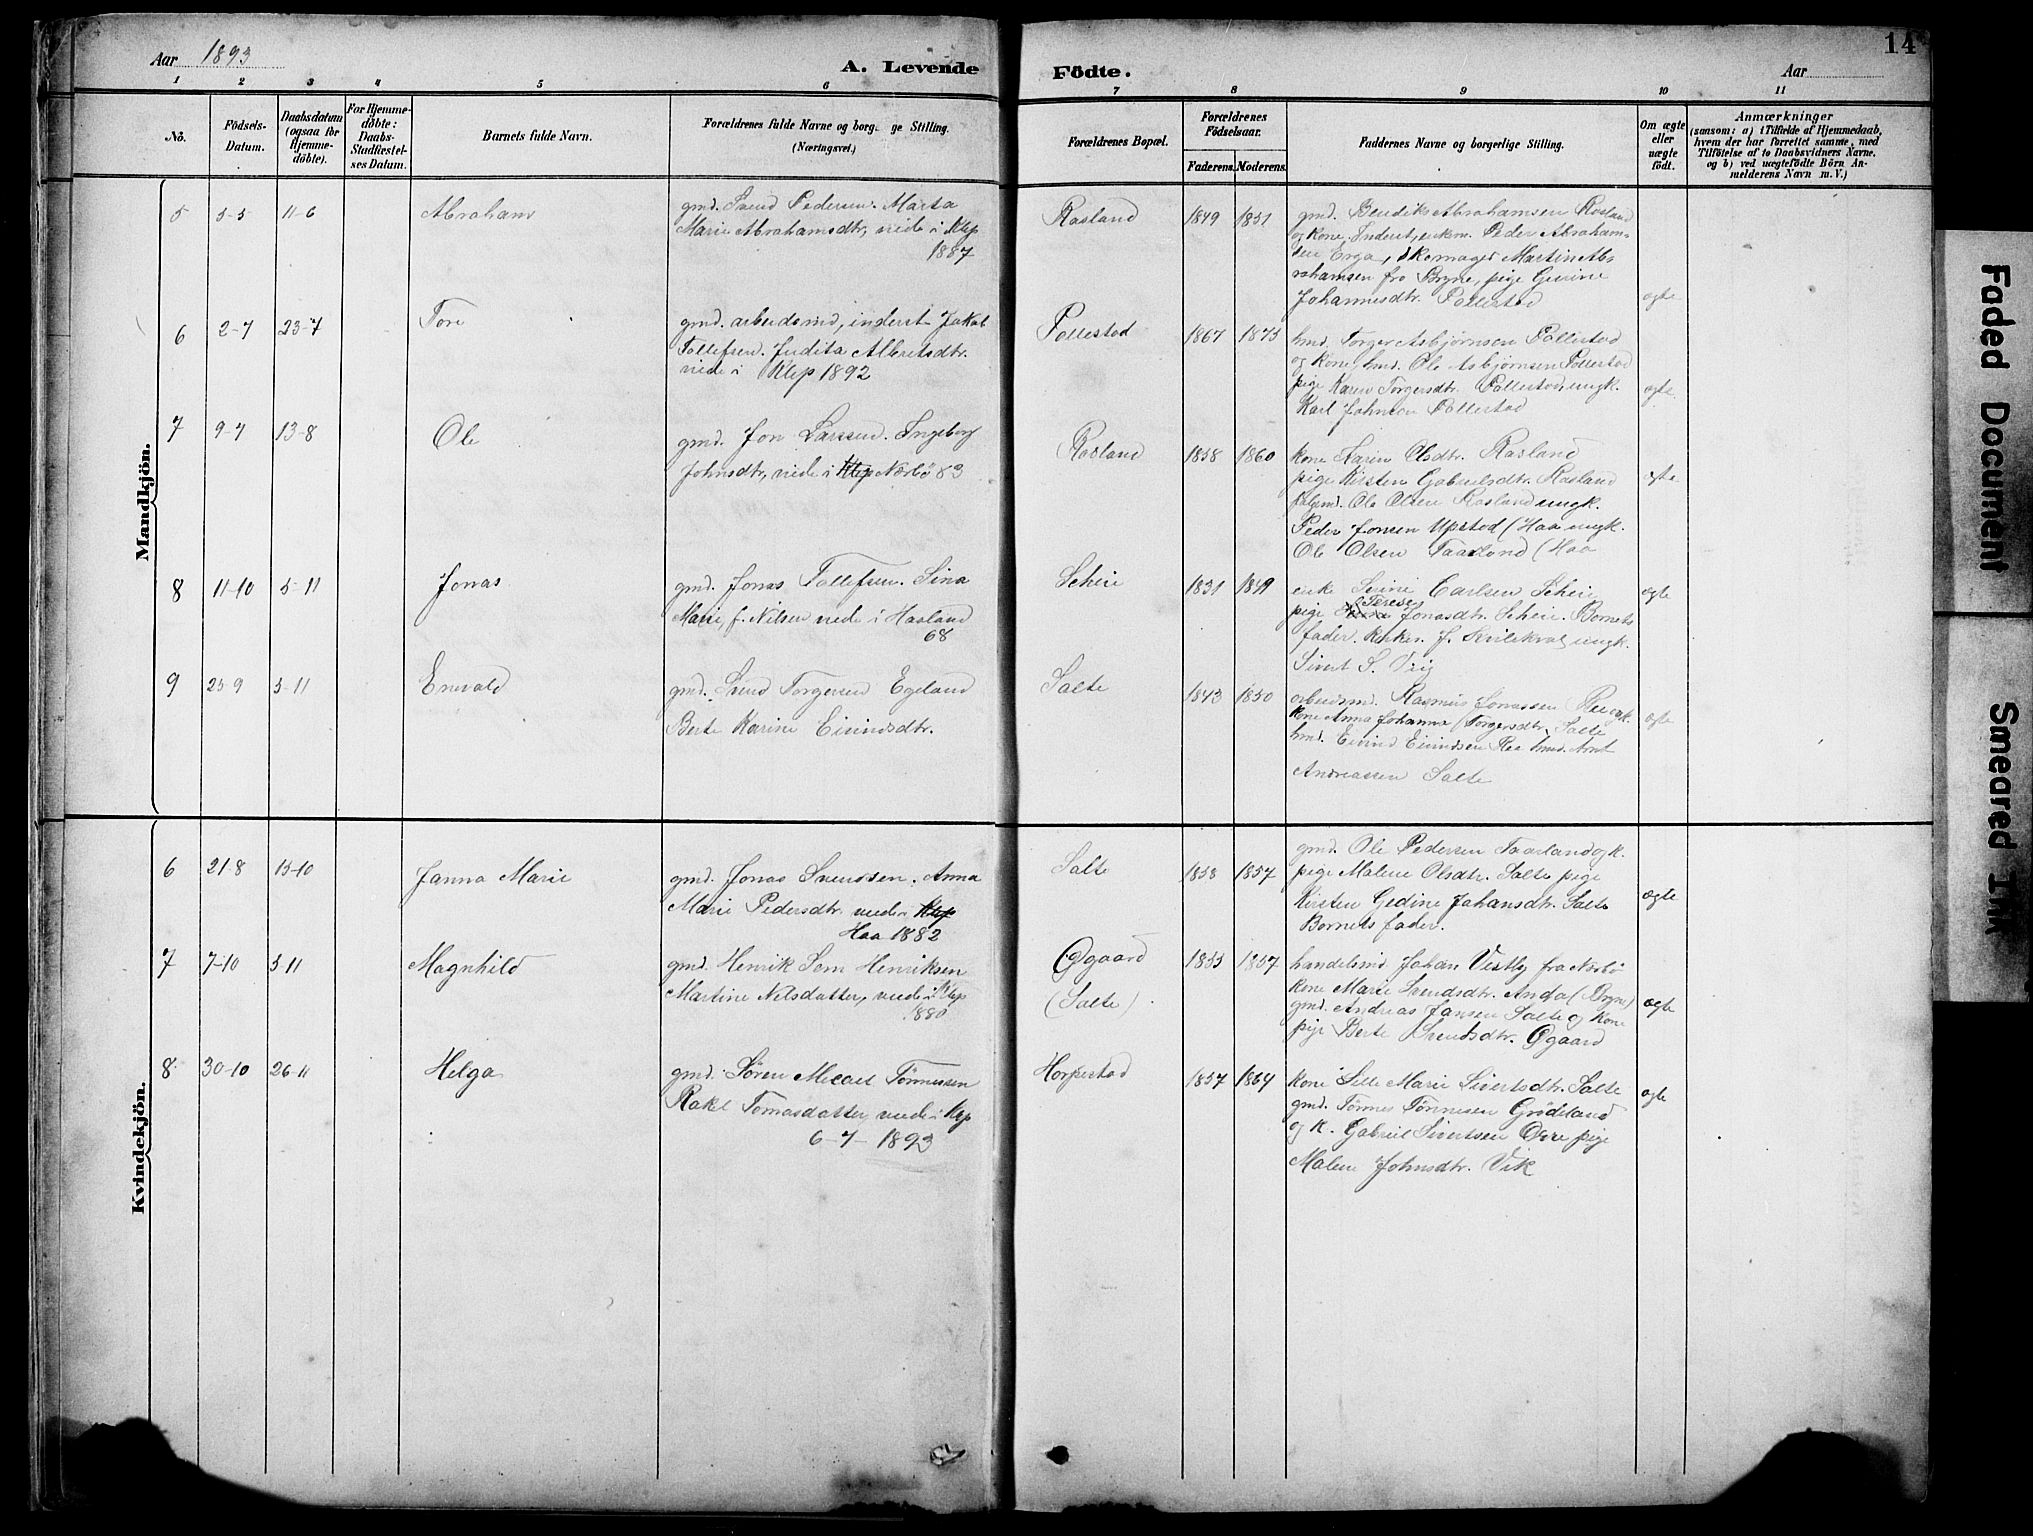 Aar 1893
A. Levende
Födte.
Aar
14
1 2 3 4 5 6 7 8 9 10 11
No.
Födsels-
Datum.
Daabsdatum
(ogsaa for
Hjemme-
döbte).
For Hjemme-
döbte:
Daabs-
Stadfæstel-
ses Datum.
Barnets fulde Navn.
Forældrenes fulde Navne og borg ge Stilling.
(Næringsvei.)
Forældrenes Bopæl.
Forældrenes
Födselsaar.
Faderens. Moderens.
Faddernes Navne og borgerlige Stilling.
Om ægte
eller
uægte
født.
Anmærkninger
(saasom: a) i Tilfælde af Hjemmedaab,
hvem der har forrettet samme, med
Tilföielse af to Daabsvidners Navne,
og b) ved uægtefödte Börn An-
melderens Navn m. V.)
Mandkjön.
5 5-5 11-6 Abraham
gmd. Svend Pedersen. Marta
Marie Abrahamsdtr, viede i Klep
1887
Rosland 1849 1851
gmd. Bendik Abrahamsen Rosland
og kone, Inderst, enkem. Peder Abraham-
sen Erga, skomager Martin Ab-
rahamsen fra Bryne, pige Gurine
Johannesdtr. Pollestad
ægte
6 2-7 23-7 Tore
gmd. arbeidsmd, inderst Jakob
Tollefsen. Judita Albretsdtr.
viede i Klep 1892
Pollestad 1867 1873
hmd. Torger Asbjørnsen Pollestad
og kone, hmd. Ole Asbjørnsen Pollestad
pige Karen Torgersdtr. Pollestad, ungk.
Karl Johnsen Pollestad
ægte
7 9-7 13-8 Ole
gmd. Jon Larsen. Ingeborg
Johnsdtr, viede i Klep Nærbö 83
Rosland 1858 1860
kone Karen Olsdtr. Rosland
pige Kirsten Gabrielsdtr. Rosland
folgmd. Ole Olsen Rosland ungk.
Peder Jonsen Upstad (Haa ungk.
Ole Olsen Taarland (Haa
ægte
8 11-10 5-11 Jonas
gmd. Jonas Tollefsen. Sina
Marie, f. Nilsen viede i Haaland
68
Scheie 1831 1849
enke Serine Carlsen Scheie
pige Terese Jonasdtr. Scheie. Barnets
fader. kirkes. J. Kvilekval, ungk.
Sivert S. Tvig
ægte
9 25-9 5-11 Enevald
gmd. Svend Torgersen Egeland
Berte Karine Eivindsdtr.
Salte 1843 1850
arbeidsmd. Rasmus Jonassen Ree og k.
kone Anna Johanna Torgersdtr. Salte
hmd. Eivind Eivindsen Ree hmd. Arnt
Andreassen Salte
ægte
Kvindekjön.
6 21-8 15-10 Janna Marie
gmd. Jonas Svendsen. Anna
Marie Pedersdtr. viede i Klep
Haa 1882
Salte 1858 1857
gmd. Ole Pedersen Taarland og k.
pige Malene Olsdtr. Salte pige
Kirsten Gedine Johansdtr. Salte
Barnets fader.
ægte
7 7-10 5-11 Magnhild
gmd. Henrik Sem Henriksen
Martine Nilsdatter, viede i Klep
1880
Øgaard
(Salte)
1855 1857
handelsmd Johan Vestly fra Nærbö
kone Marie Svendsdtr. Anda (Bryne)
gmd. Andreas Jansen Salte og kone
pige Berte Svendsdtr. Øgaard
ægte
8 30-10 26-11 Helga
gmd. Søren Micael Tönnessen
Rakel Tomasdatter, viede i Klep
6-7-1893
Horpestad 1857 1864
kone Sille Marie Sivertsdtr. Salte
gmd. Tönnes Tönnesen Grödeland
og k. Gabriel Sivertsen Orre pige
Malene Johnsdtr. Vik
ægte
Faded Document
Smeared Ink